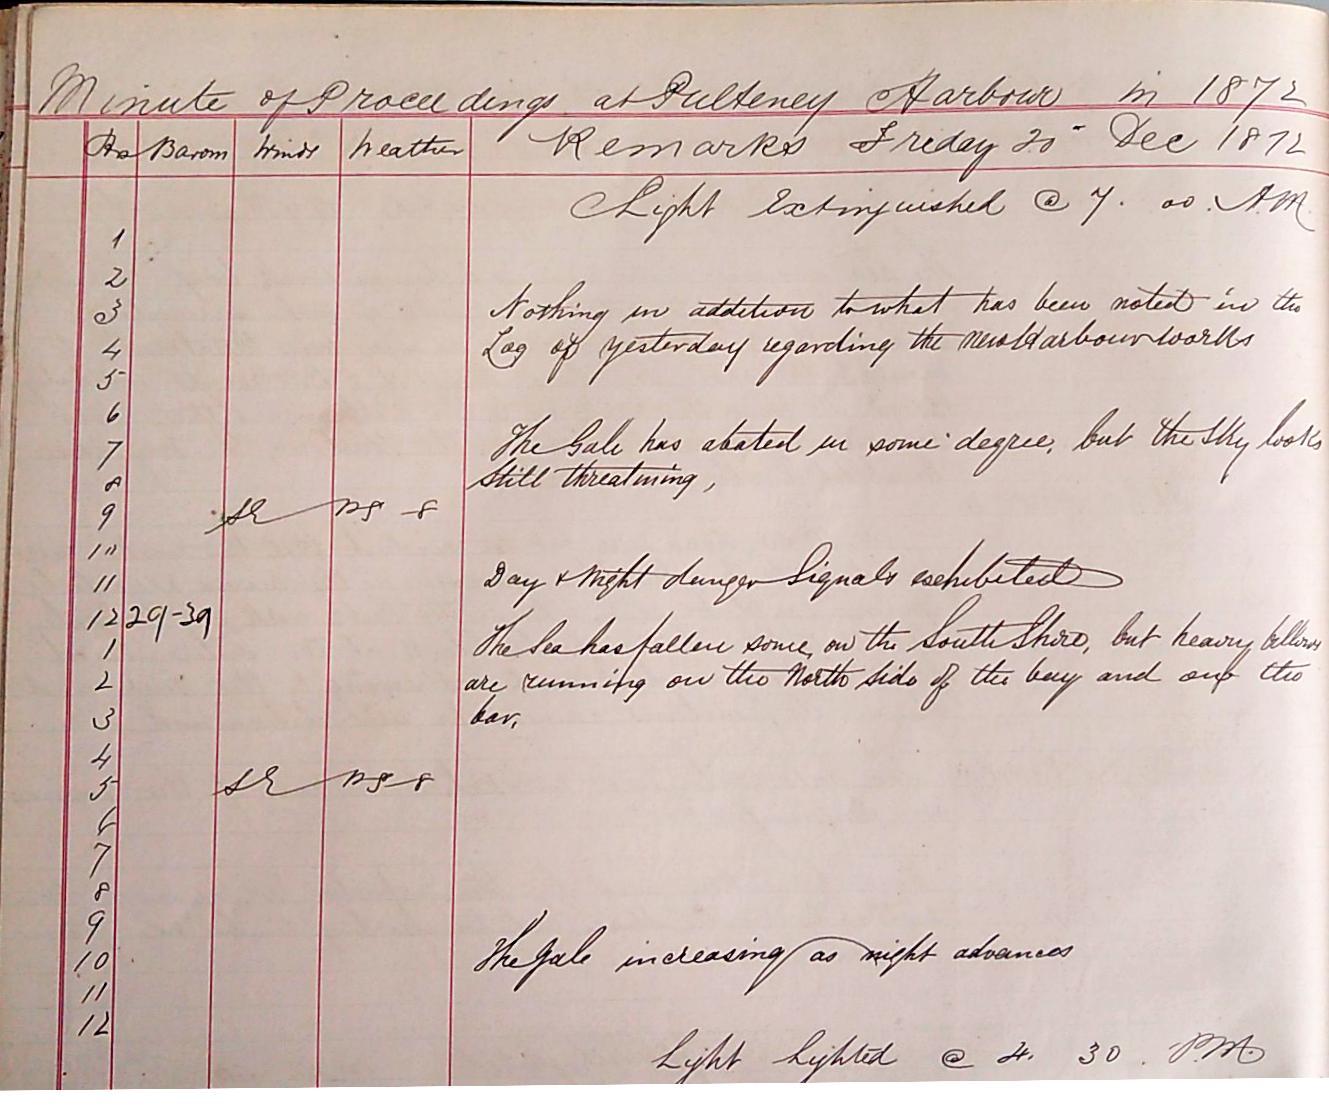 Minute of Proceedings at Pulteney Harbour in 1872
Hs Barom Winds Weather Remarks Friday 20 Dec 1872
Light Extinguished @ 7. 00. A.M.
1
2
3 Nothing in addition to what has been noted in the
4 Log of yesterday regarding the new Harbour works
5
6
7 The Gale has abated in some degree, but the Sky looks
8 still threatining,
9 SE
10
11 Day & Night danger Signals exhibited
12 29-39
1 The Sea has fallen some, on the South Shore, but heavy billows
2 are running on the North side of the bay and on the
3 bar.
4
5 SE
6
7
8
9
10 The Gale increasing as night advances
11
12
Light Lighted @ 4. 30. P.M.